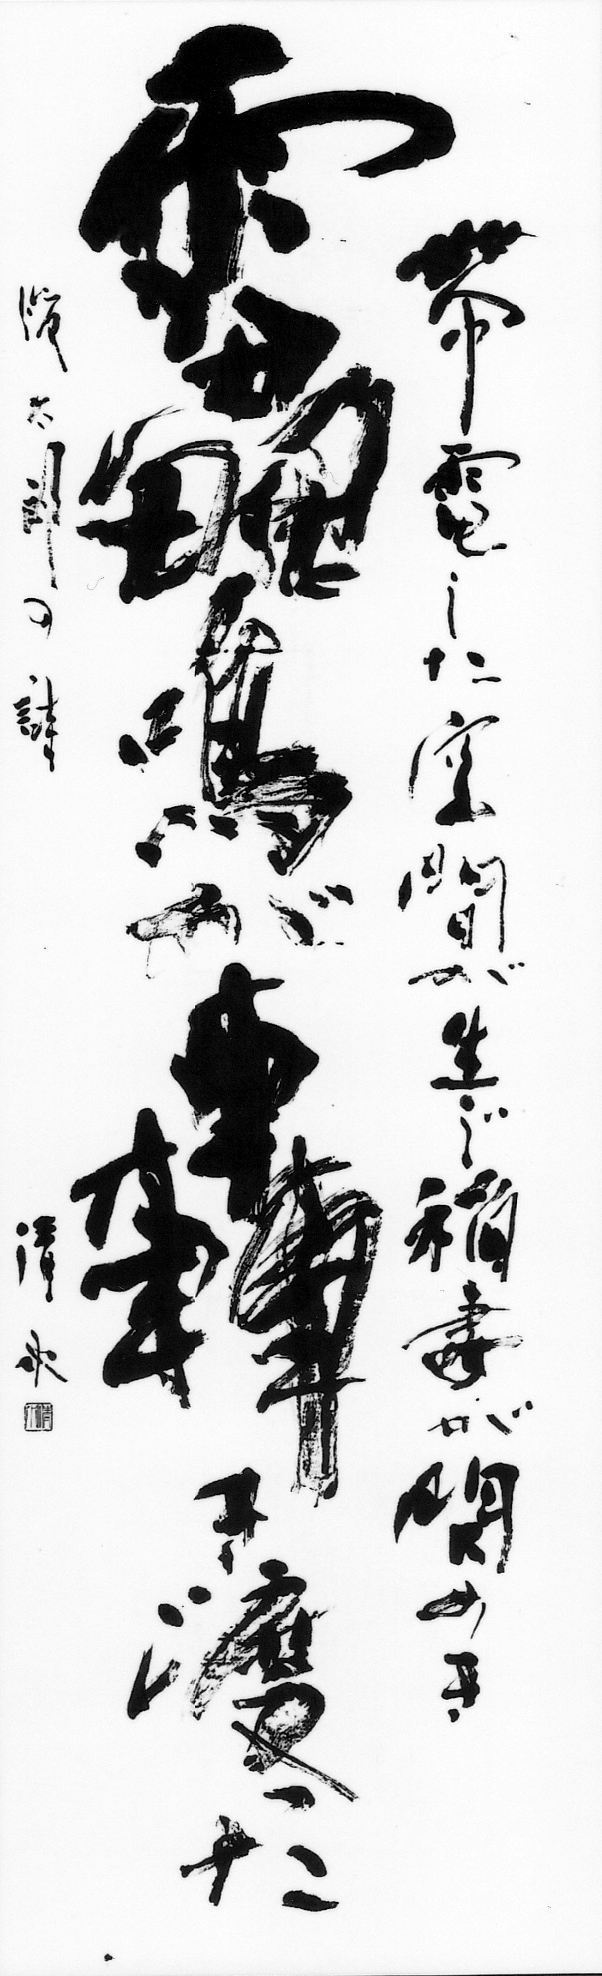 帯電した空間が生じ稲妻が閃めき
靁鳴が轟き渡った
太郎の詩